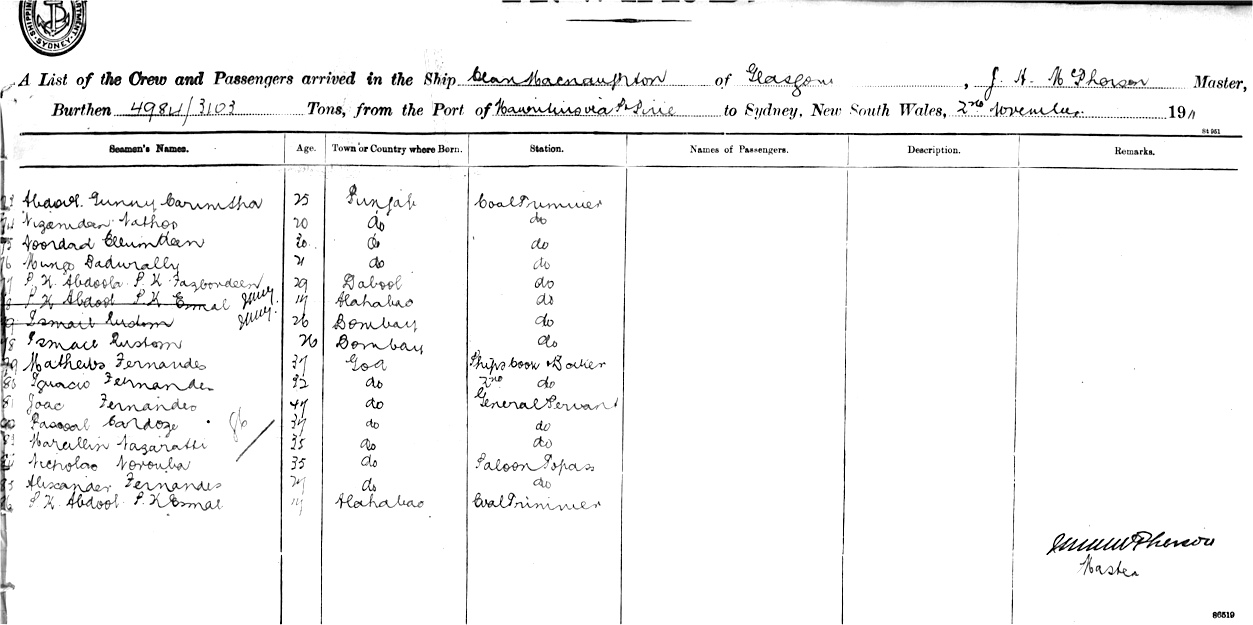 SHIPPING
SYDNEY.
A List of the Crew and Passengers arrived in the Ship Clan Macnaughton of Glasgow, J. H. McPherson Master,
Burthen 4984/3103 Tons, from the Port of Pirie to Sydney, New South Wales, 2nd November 191
84951
Seamen's Names. Age. Town or Country where Born. Station. Names of Passengers. Description. Remarks.
Abdool Gunny Carimsha 25 Punjab Coal Trimmer
Nizamdeen Nathoo 20 do do
Noordad 20 do do
76 Mungo Badurally 21 do do
77 S. K. Abdoola S. K. Fazbondeen 29 Dabool do
S K Abdool S. K Esmal 19 Alahabao do
Ismail Rustom 26 Bombay do
78 Ismail Rustom 26 Bombay do
79 Mathews Fernandes 37 Goa Ships Cook & Baker
80 Ignacio Fernandes 32 do 2nd do
81 Joao Fernandes 47 do General Servant
Pascoal Cardoze 37 do do
86
Marcellin Nazaratti 35 do do
Nicholao Norouba 35 do Saloon Topass
85 Alexander Fernandes 27 do do
86 S. K. Abdool S. K Esmal 19 Alahabao Coal Trimmer
McPherson
Master
86519